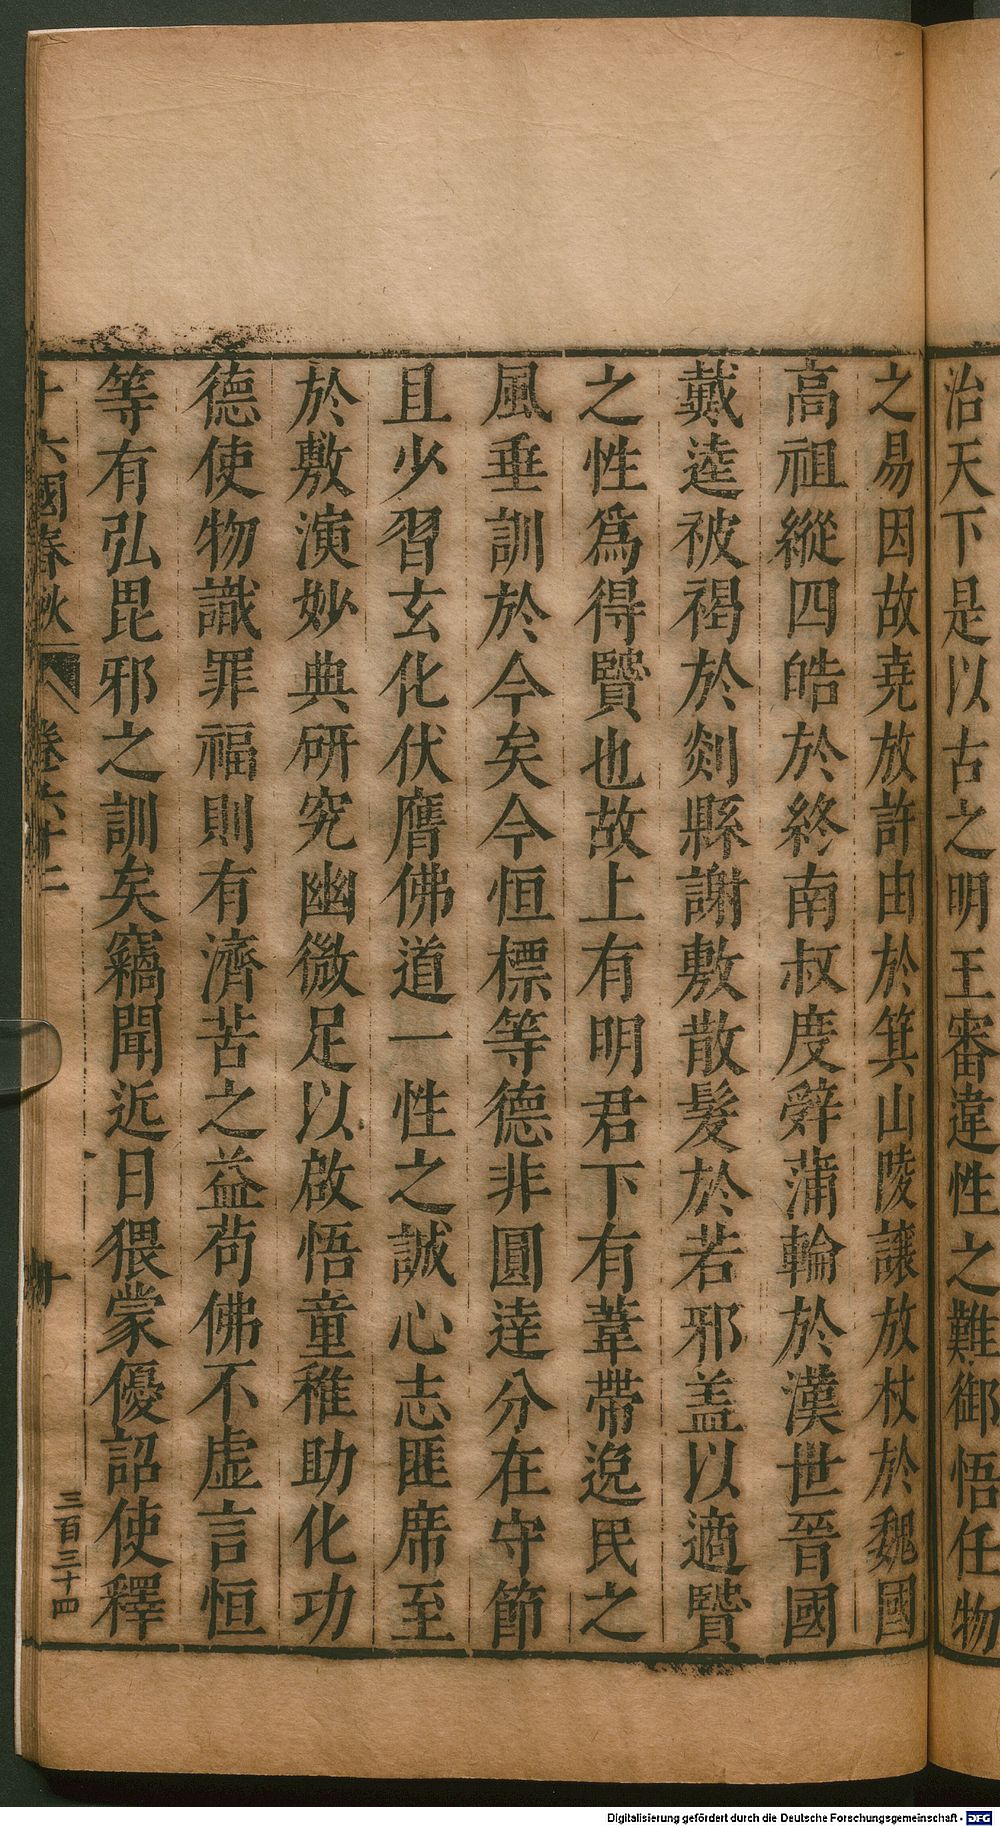 治天下是以古之明王審違性之難御悟任物
之易因故堯放許由於箕山陵讓放杖於魏國
高祖縱四皓於終南叔度辤蒲輪於漢世晉國
戴逵被褐於剡縣謝敷散髮於若邪盖以適賢
之性爲得賢也故上有明君下有韋帶逸民之
風垂訓於今矣今恒標等德非圓達分在守節
且少習玄化伏膺佛道一性之誠心志匪席至
於敷演妙典研究幽微足以啟悟童稚助化功
德使物識罪福則有濟苦之益茍佛不虛言恒
等有弘毘邪之訓矣竊聞近日猥蒙優詔使釋
十六國春秋
卷六十二
三百三十四
Digitalisierung gefördert durch die Deutsche Forschungsgemeinschaft - DFG